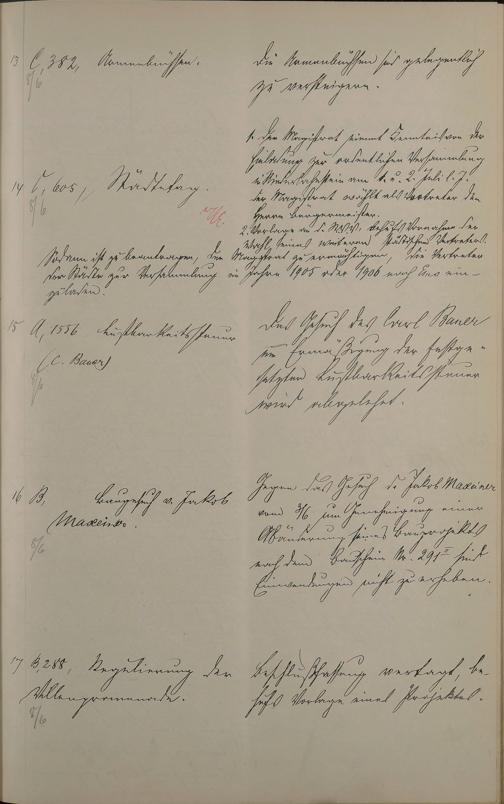 13 C, 382, Armenbüchsen.
8/6
Die Armenbüchsen sind gelegentlich
zu versteigern.
14 C, 605,, Städtetag.
8/6
1. Der Magistrat nimmt Kenntnis von der
Einladung zur ordentlichen Versammlung
in am 1. u. 2. Juli l. J.
Der Magistrat wählt als Vertreter den
Herrn Bürgermeister.
2. Vorlage an d. behufs Vornahme der
Wahl eines weiteren städtischen Vertreters.
Sodann ist zu beantragen, den Magistrat zu ermächtigen, die Vertreter
der Städte zur Versammlung im Jahre 1905 oder 1906 nach ein-
zuladen.
15 A, 1556 Lustbarkeitssteuer
(C. Bauer)
8/6
Das Gesuch des Carl Bauer
um Ermäßigung der festge-
setzten Lustbarkeitssteuer
wird abgelehnt.
16 B, Baugesuch v. Jakob
Maxeiner.
8/6
Gegen das Gesuch des Jakob Maxeiner
vom 3/6 um Genehmigung einer
Abänderung seines Bauprojekts
nach dem Bauschein Nr. 291 sind
Einwendungen nicht zu erheben.
17 B, 288, Regulierung der
Villenpromenade.
8/6
Beschlußfassung vertagt, be-
hufs Vorlage eines Projektes.